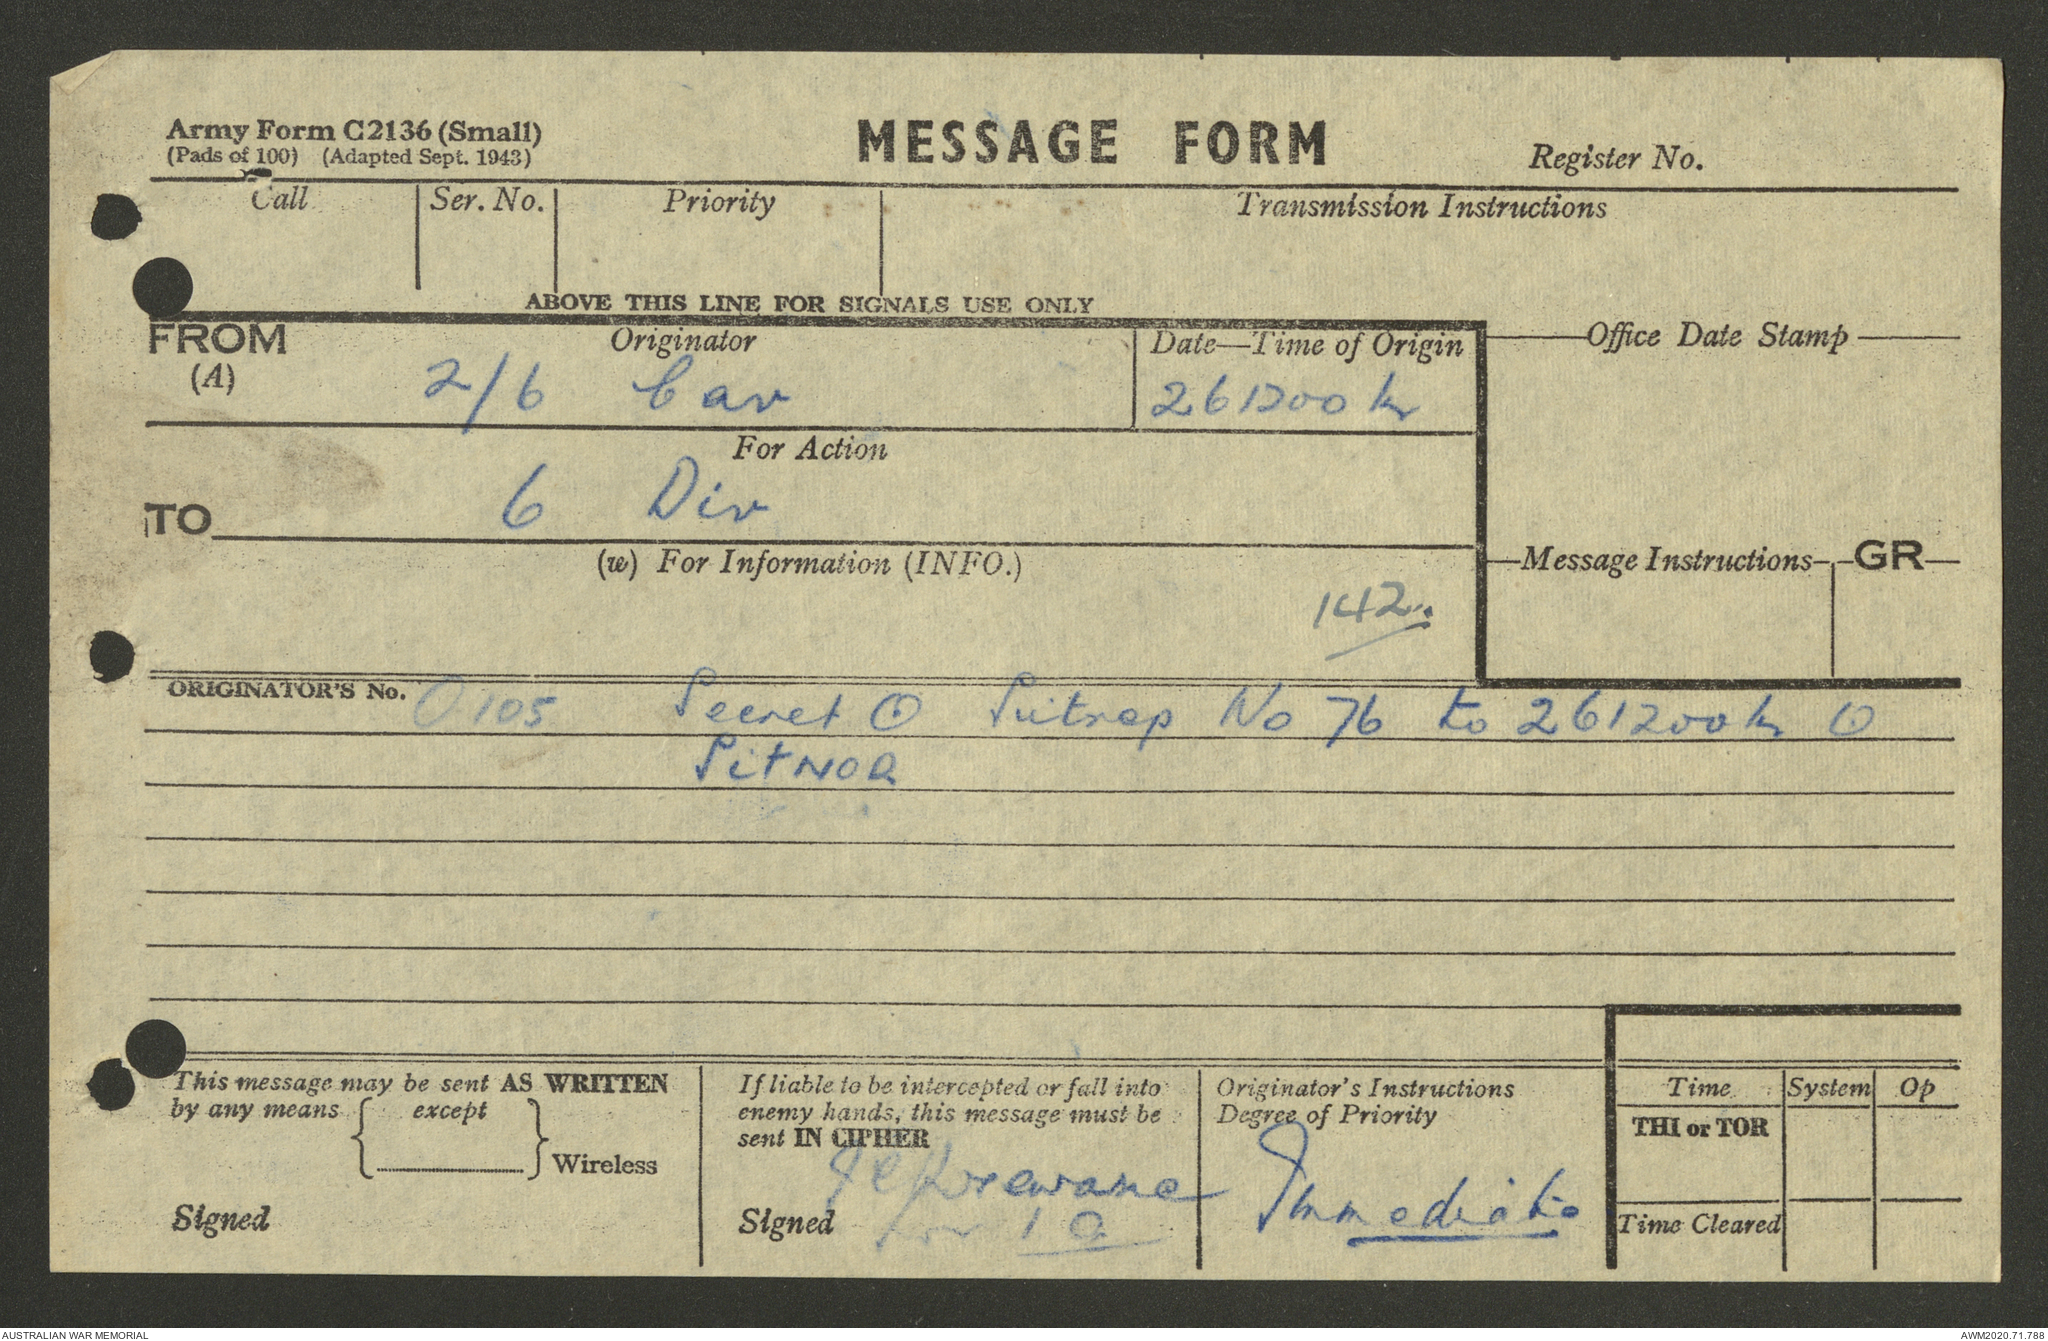 Army Form C2136 (Small)
(Pads of 100) (Adapted Sept. 1943)
MESSAGE FORM
Register No.
Call
Ser. No.
Priority
Transmission Instructions
ABOVE THIS LINE FOR SIGNALS USE ONLY
FROM
(A)
Originator
2/6 Cav
Date—Time of Origin
261200k
Office Date Stamp
For Action
TO
6 Div
(w) For Information (INFO.)
142
Message Instructions
GR
ORIGINATOR'S No. O105 Secret O Sitrep No 76 to 261200k O
Sitnor
This message may be sent AS WRITTEN
by any means { except
} Wireless
Signed
If liable to be intercepted or fall into
enemy hands, this message must be
sent IN CIPHER
Signed
Originator's Instructions
Degree of Priority
Immediate
Time
System
Op
THI or TOR
Time Cleared
AUSTRALIAN WAR MEMORIAL
AWM2020.71.788